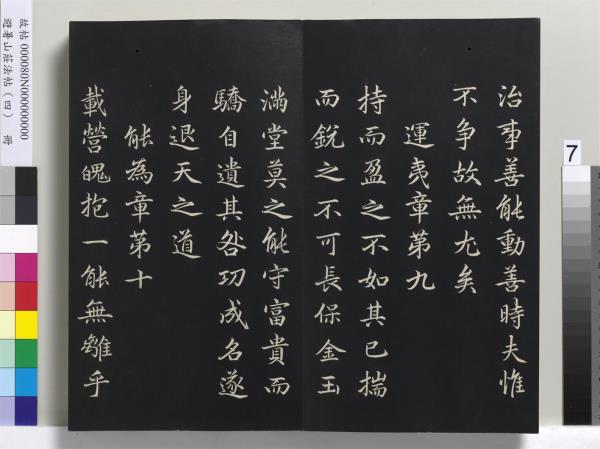 治事善能動善時夫惟
不争故無尤矣
運夷章第九
持而盈之不如其已揣
而銳之不可長保金玉
滿堂莫之能守富貴而
驕自遺其咎功成名遂
身退天之道
能為章第十
載營魄抱一能無離乎
故帖 000080N000000000
避暑山莊法帖（四） 冊
7